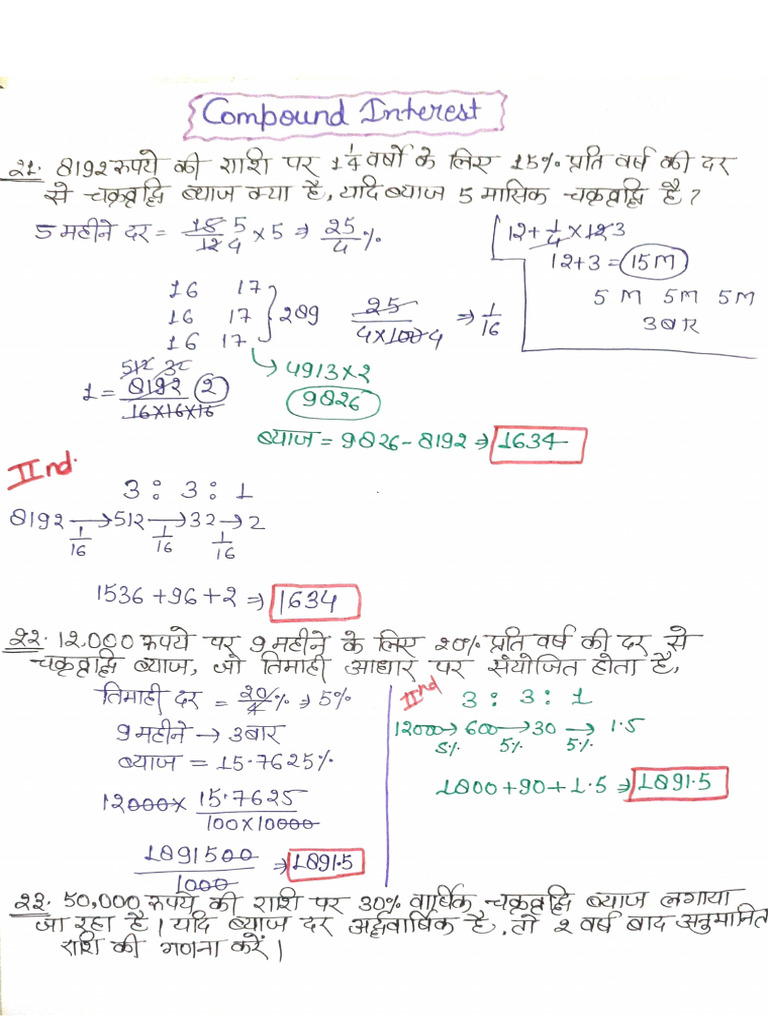 Compound Interest
21. 8192 रुपये की राशि पर 1 1/4 वर्षो के लिए 15% प्रति वर्ष की दर
से चक्रवृद्धि ब्याज क्या है, यदि ब्याज 5 मासिक चक्रवृद्धि है?
5 महीने दर = 15 5/12 4 × 5 ⇒ 25/4 %
12 + 1/4 × 12 3
12 + 3 = 15 M
5 M 5 M 5 M
3 बार
16 17
16 17 } 289
16 17
25/4×100 4 ⇒ 1/16
→ 4913 × 2
9826
512 32
1 = 8192 2/16×16×16
ब्याज = 9826 - 8192 ⇒ 1634
IInd.
3 : 3 : 1
8192 → 512 → 32 → 2
1/16 1/16 1/16
1536 + 96 + 2 ⇒ 1634
22. 12,000 रुपये पर 9 महीने के लिए 20% प्रति वर्ष की दर से
चक्रवृद्धि ब्याज, जो तिमाही आधार पर संयोजित होता है,
तिमाही दर = 20/4 % ⇒ 5%
9 महीने → 3 बार
ब्याज = 15.7625%
12000 × 15.7625/100×10000
1891500/1000 ⇒ 1891.5
IInd
3 : 3 : 1
12000 → 600 → 30 → 1.5
5% 5% 5%
1800 + 90 + 1.5 ⇒ 1891.5
23. 50,000 रुपये की राशि पर 30% वार्षिक चक्रवृद्धि ब्याज लगाया
जा रहा है। यदि ब्याज दर अर्द्धवार्षिक है, तो 2 वर्ष बाद अनुमानित
राशि की गणना करें।